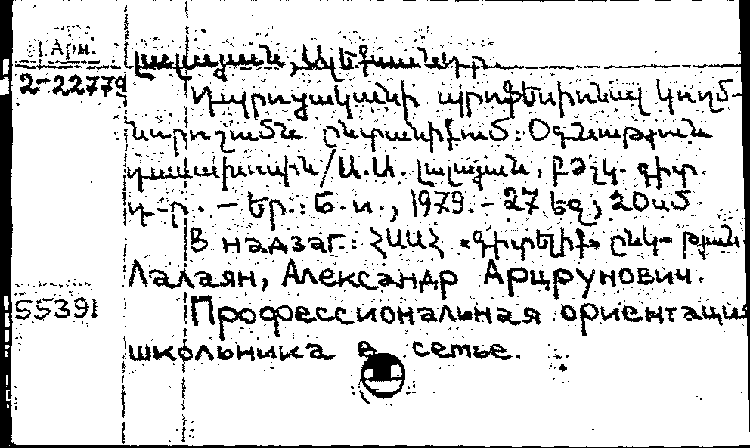 Арм.
2-22779 Լալայան, Ալեքսանդր.
Դպրոցականի պրոֆեսիոնալ կողմ-
նորոշումն ընտանիքում: Օգնություն
դասախոսին / Ա.Ա. Լալայան, բժշկ. գիտ.
դ-ր. – Եր.: Б. и., 1979. - 27 եզ; 20սմ
В надзаг.: ՀՍՍՀ «գիտելիք» ընկ-թյուն.
Лалаян, Александр Арцрунович.
55391 Профессиональная ориентация
школьника в семье.